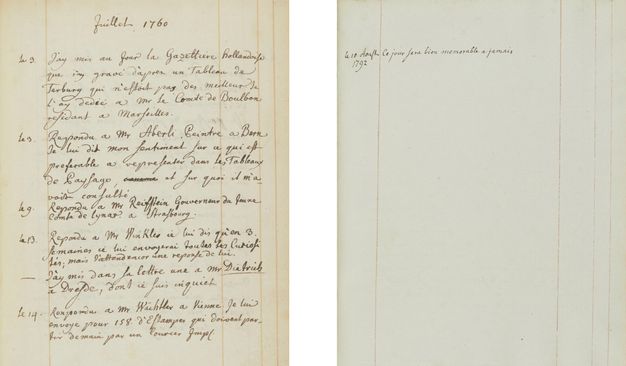 Juillet 1760
le 3. J'ay mis au Jour la Gazettiere Hollandoise
que j'ay gravé d'apres un Tableau de
Terburg qui n'estoit pas des meilleur Je
l'ay dediée a Mr le Comte de Boulbon
residant a Marseilles.
le 3. Respondu a Mr Aberli Peintre a Bern
Je lui dit mon sentiment sur ce qui est
preferable a representer dans les Tableaux
de Paysage et sur quoi il m'a-
voit consulté
le 9. Repondu a Mr Reiffstein Gouverneur du Jeune
Comte de Lynar a Strasbourg.
le 13. Repondu a Mr Winkler je lui dis qu'en 3.
semaines je lui envoyerai toutes les Curiosi-
tés, mais j'attend encor une reponse de lui.
— J'ay mis dans la lettre une a Mr Dietrich
a Dresde, dont je suis inquiet
le 14. Respondu a Mr Wächtler a Vienne Je lui
envoye pour 158 d'Estampes qui doivent par-
tir demain par un Courier Imp
le 10 Aoust Ce jour sera bien memorable a jamais
1792